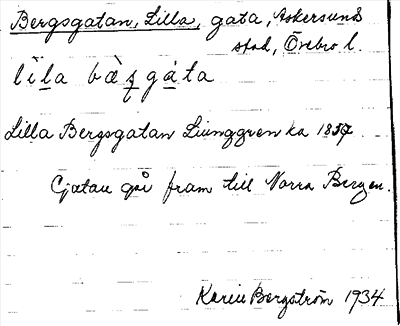 Bergsgatan, Lilla, gata, Askersunds
stad, Örebro l.
lìla bæ̀ʂgáta
Lilla Bergsgatan Ljunggren ka
Gatan går fram till Norra Bergen.
Karin Bergström 1934